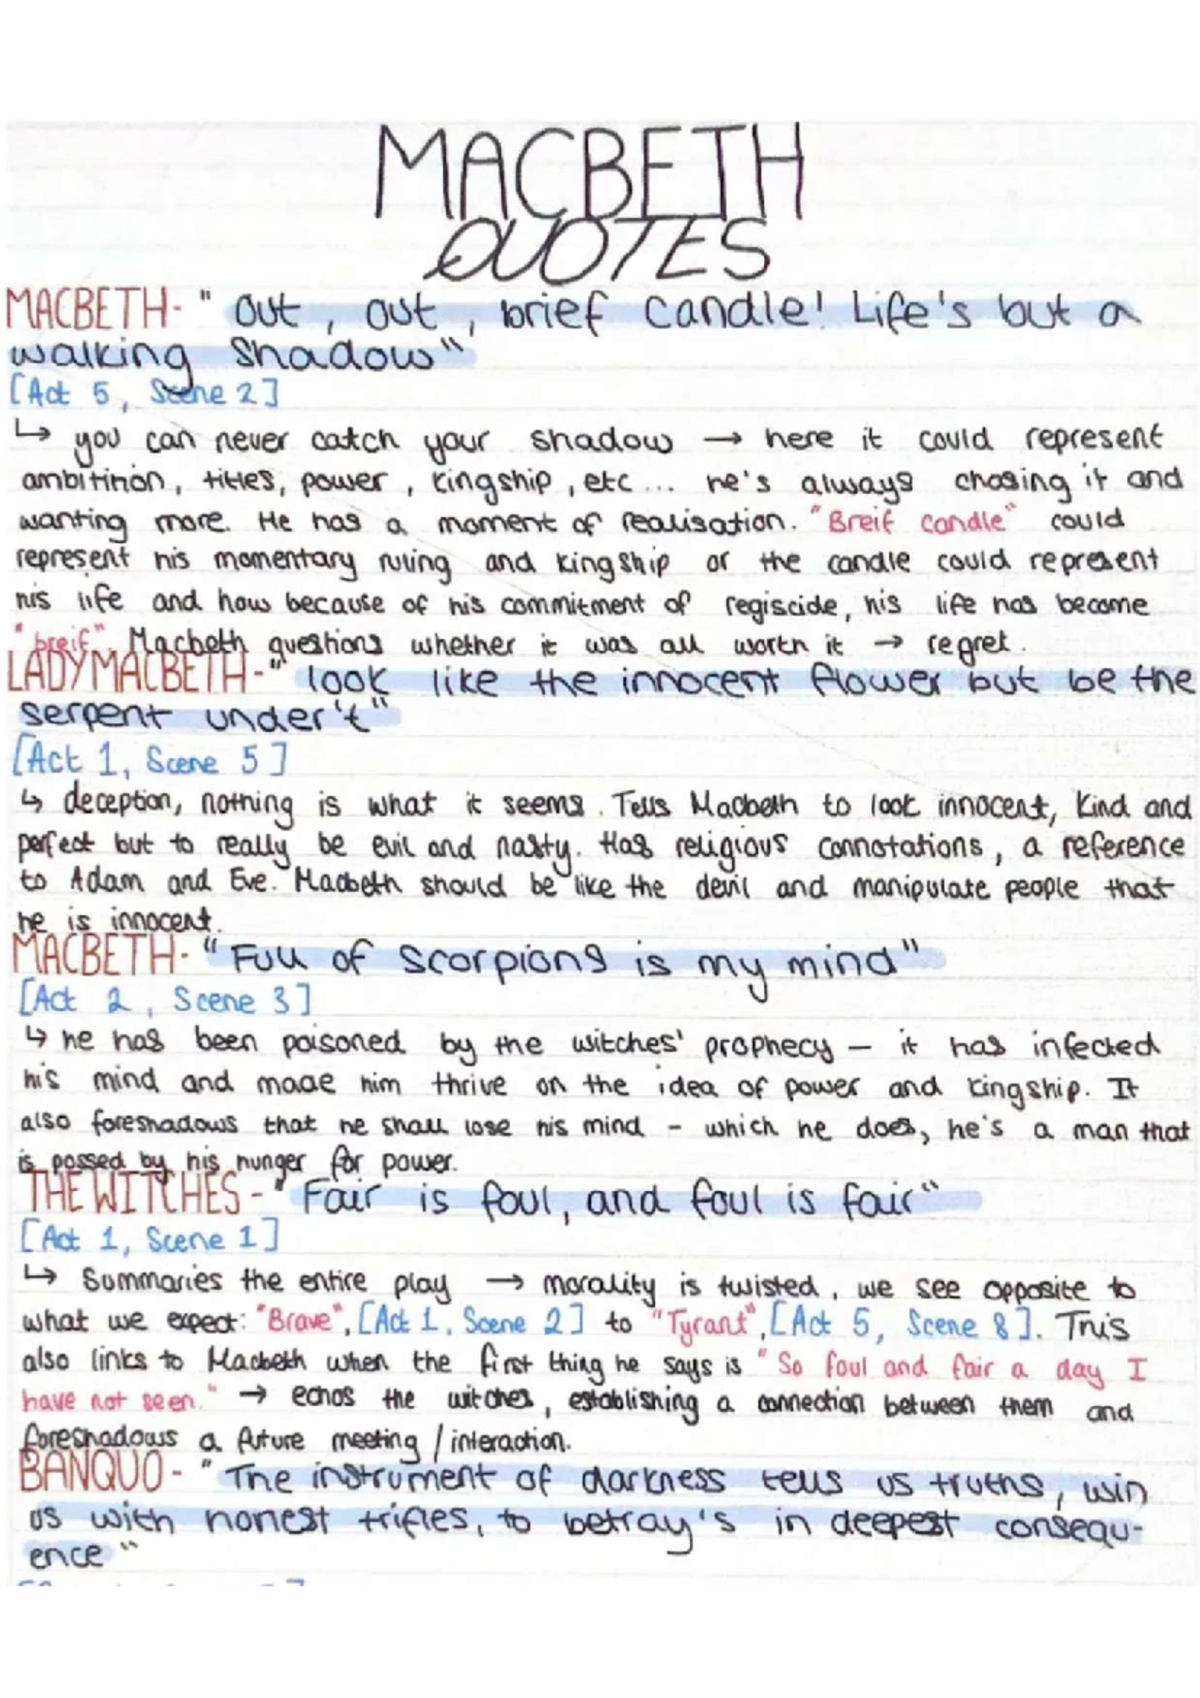 MACBETH
QUOTES
MACBETH- " out, out, brief candle! Life's but a
walking shadow"
[Act 5, Scene 2]
↳ you can never catch your shadow → here it could represent
ambitinon, titles, power, kingship, etc... he's always chasing it and
wanting more. He has a moment of realisation. "Breif candle" could
represent his momentary ruling and kingship or the candle could represent
his life and how because of his commitment of regiscide, his life has become
"breif". Macbeth questions whether it was all worth it → regret.
LADY MACBETH-" look like the innocent flower but be the
serpent under't"
[Act 1, Scene 5]
↳ deception, nothing is what it seems. Tells Macbeth to look innocent, kind and
perfect but to really be evil and nasty. Has religious connotations, a reference
to Adam and Eve. Macbeth should be like the devil and manipulate people that
he is innocent.
MACBETH- "Full of scorpions is my mind"
[Act 2, Scene 3]
↳ he has been poisoned by the witches' prophecy – it has infected
his mind and made him thrive on the idea of power and kingship. It
also foreshadows that he shall lose his mind - which he does, he's a man that
is possed by his hunger for power.
THE WITCHES - "Fair is foul, and foul is fair"
[Act 1, Scene 1]
↳ Summaries the entire play → morality is twisted, we see opposite to
what we expect: "Brave", [Act 1, Scene 2] to "Tyrant", [Act 5, Scene 8]. This
also links to Macbeth when the first thing he says is "So foul and fair a day I
have not seen." → echos the witches, establishing a connection between them and
foreshadows a future meeting / interaction.
BANQUO- "The instrument of darkness tells us truths, win
us with honest trifles, to betray's in deepest consequ-
ence"